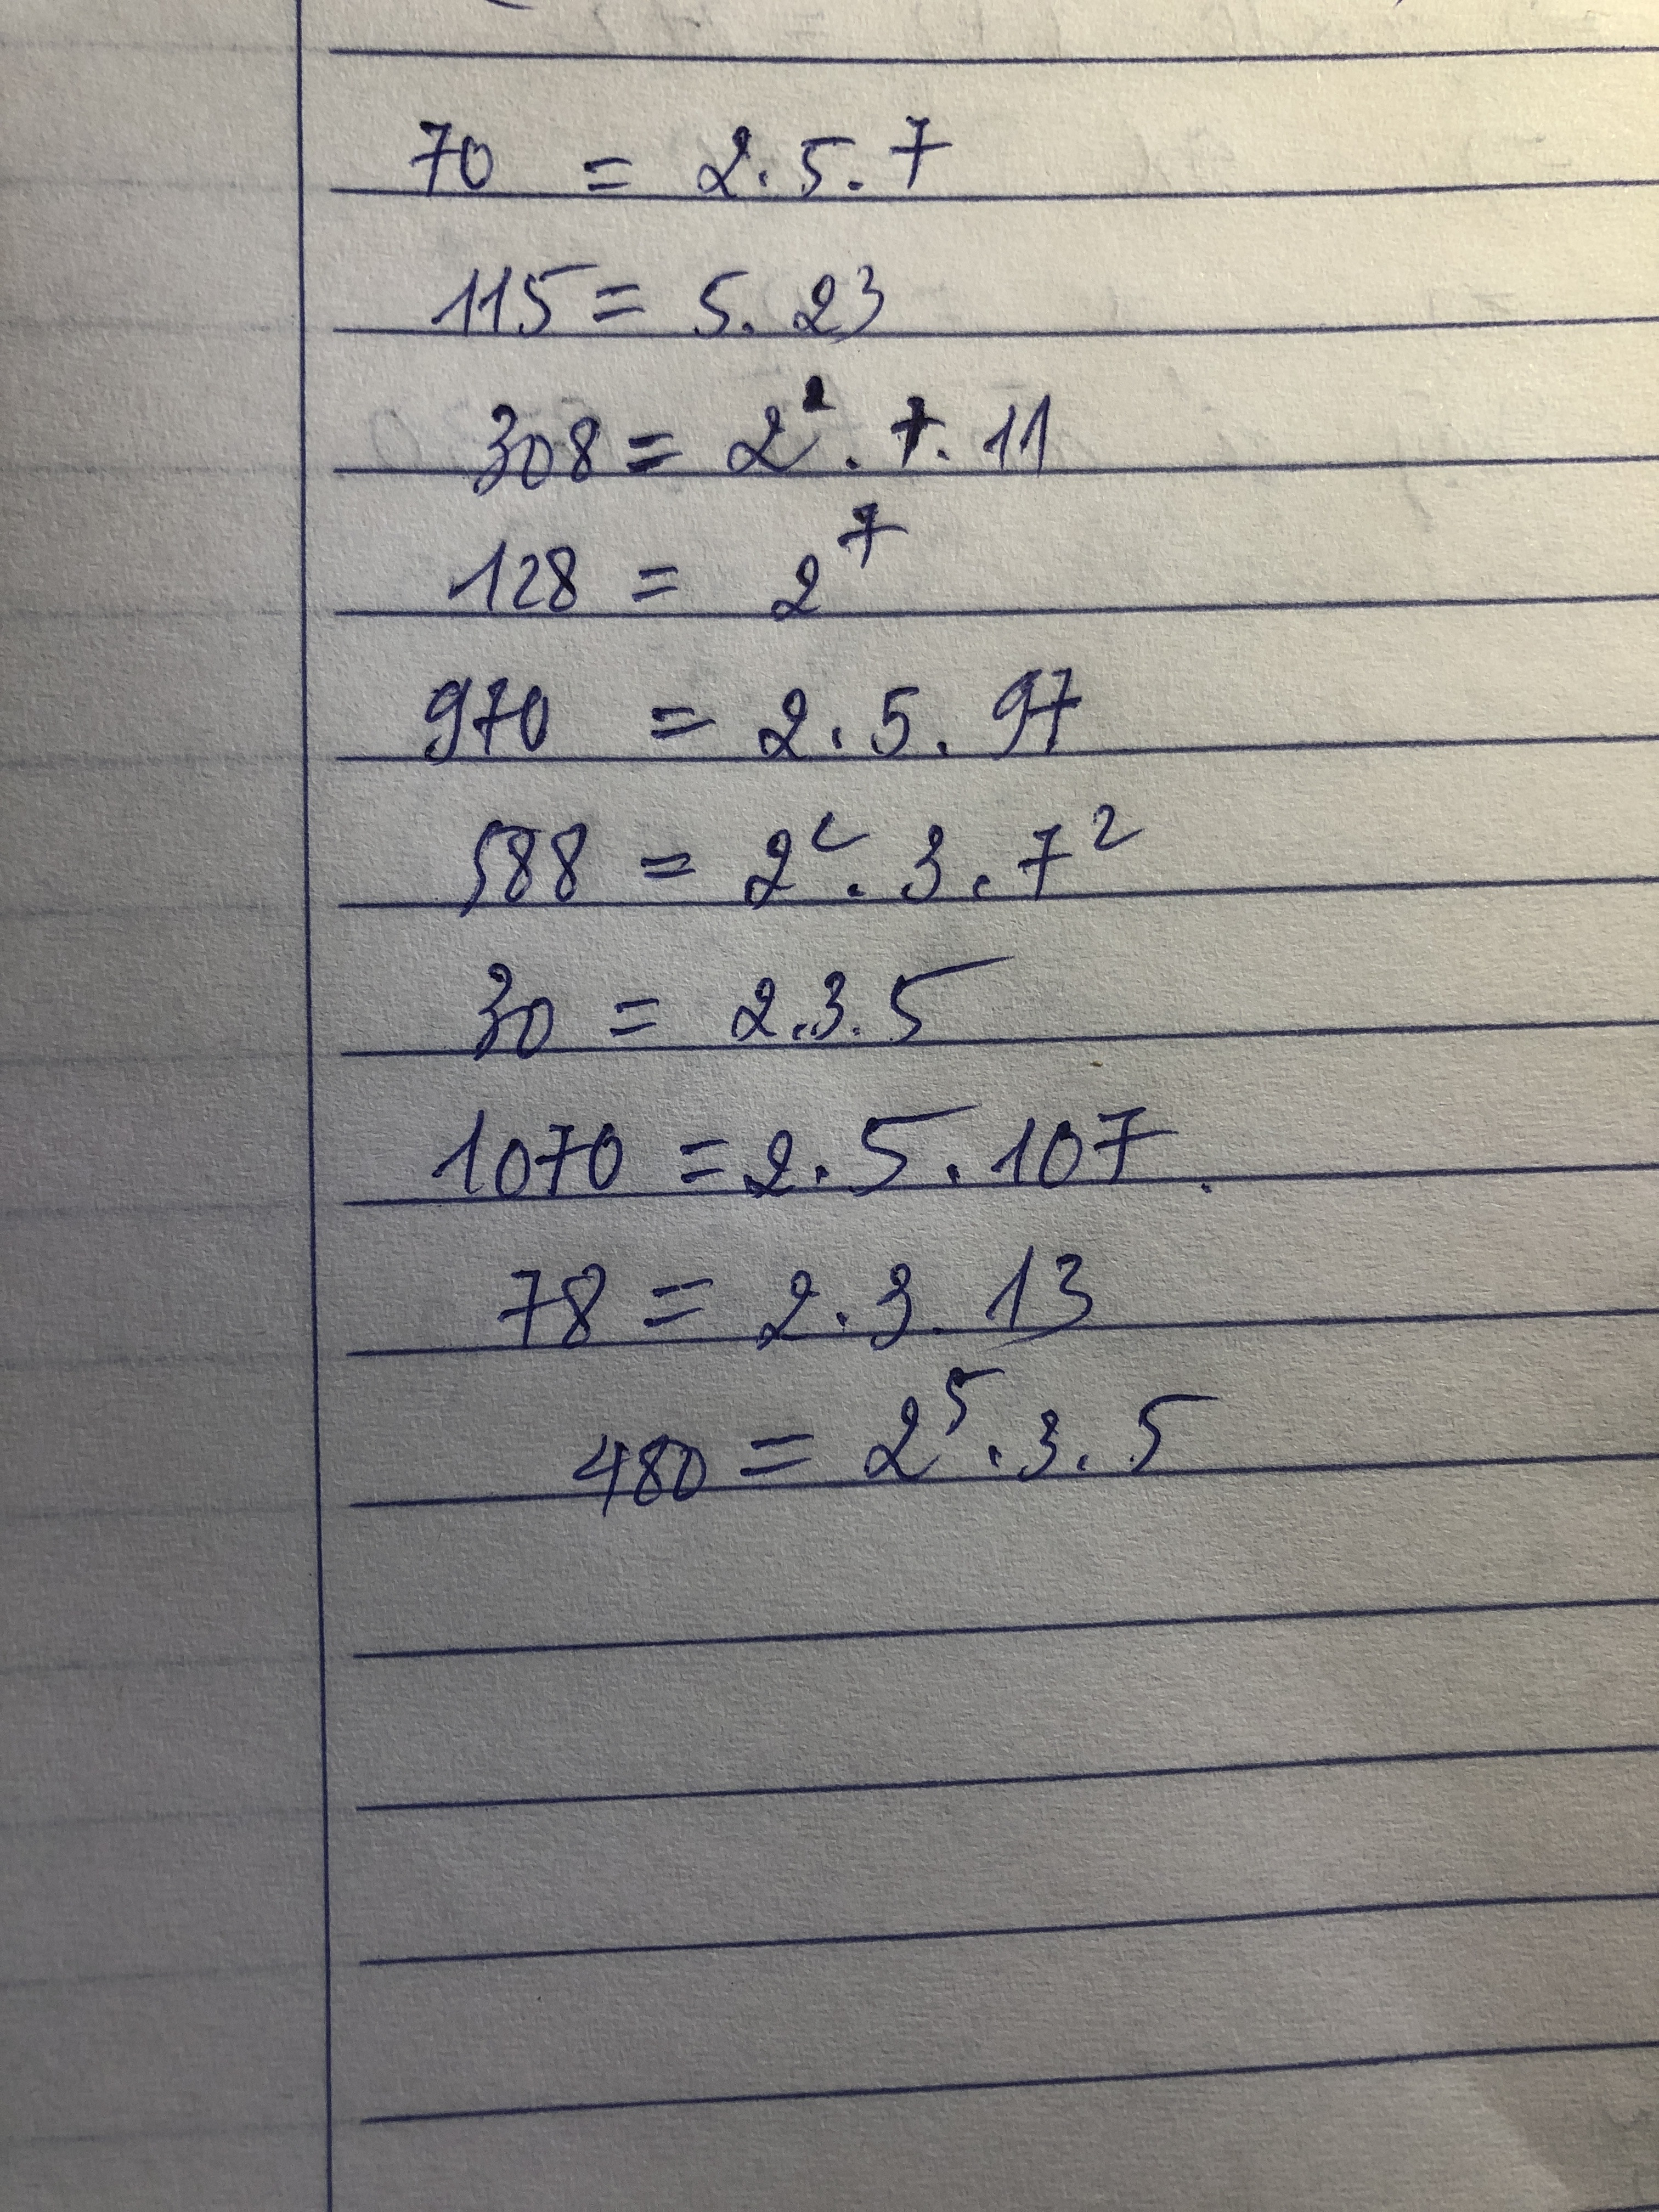 70 = 2.5.7
115 = 5.23
308 = 2².7.11
128 = 2⁷
970 = 2.5.97
588 = 2².3.7²
30 = 2.3.5
1070 = 2.5.107.
78 = 2.3.13
480 = 2⁵.3.5